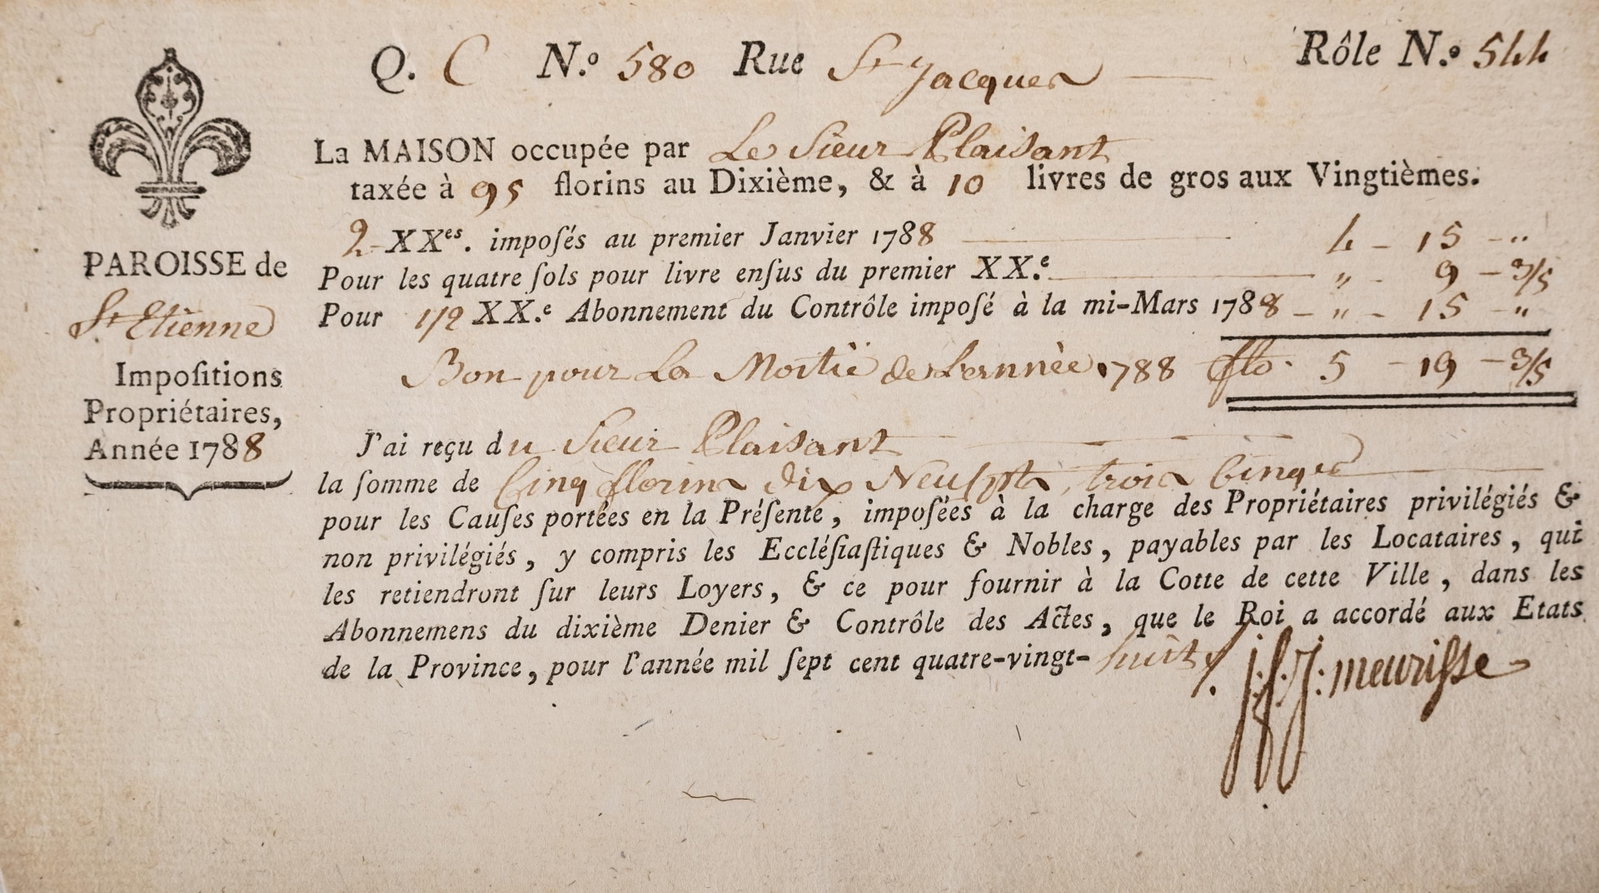 Q. C N.º 580 Rue St Jacques
Rôle N.º 544
La MAISON occupée par Le Sieur Plaisant
taxée à 95 florins au Dixième, & à 10 livres de gros aux Vingtièmes.
2 XXes. impoſés au premier Janvier 1788 4 - 15 - "
Pour les quatre ſols pour livre enſus du premier XX.e " - 9 - 3/5
Pour 1/2 XX.e Abonnement du Contrôle impoſé à la mi-Mars 1788 - " - 15 - "
Bon pour La Moitié de L'année 1788 flo. 5 - 19 - 3/5
PAROISSE de
St Etienne
Impoſitions
Propriétaires,
Année 1788
J'ai reçu du Sieur Plaisant
la ſomme de Cinq florins dix Neuf pts, trois Cinqe
pour les Cauſes portées en la Préſente, impoſées à la charge des Propriétaires privilégiés &
non privilégiés, y compris les Eccléſiaſtiques & Nobles, payables par les Locataires, qui
les retiendront ſur leurs Loyers, & ce pour fournir à la Cotte de cette Ville, dans les
Abonnemens du dixième Denier & Contrôle des Actes, que le Roi a accordé aux Etats
de la Province, pour l'année mil ſept cent quatre-vingt-huit
J: f: J: meurisse